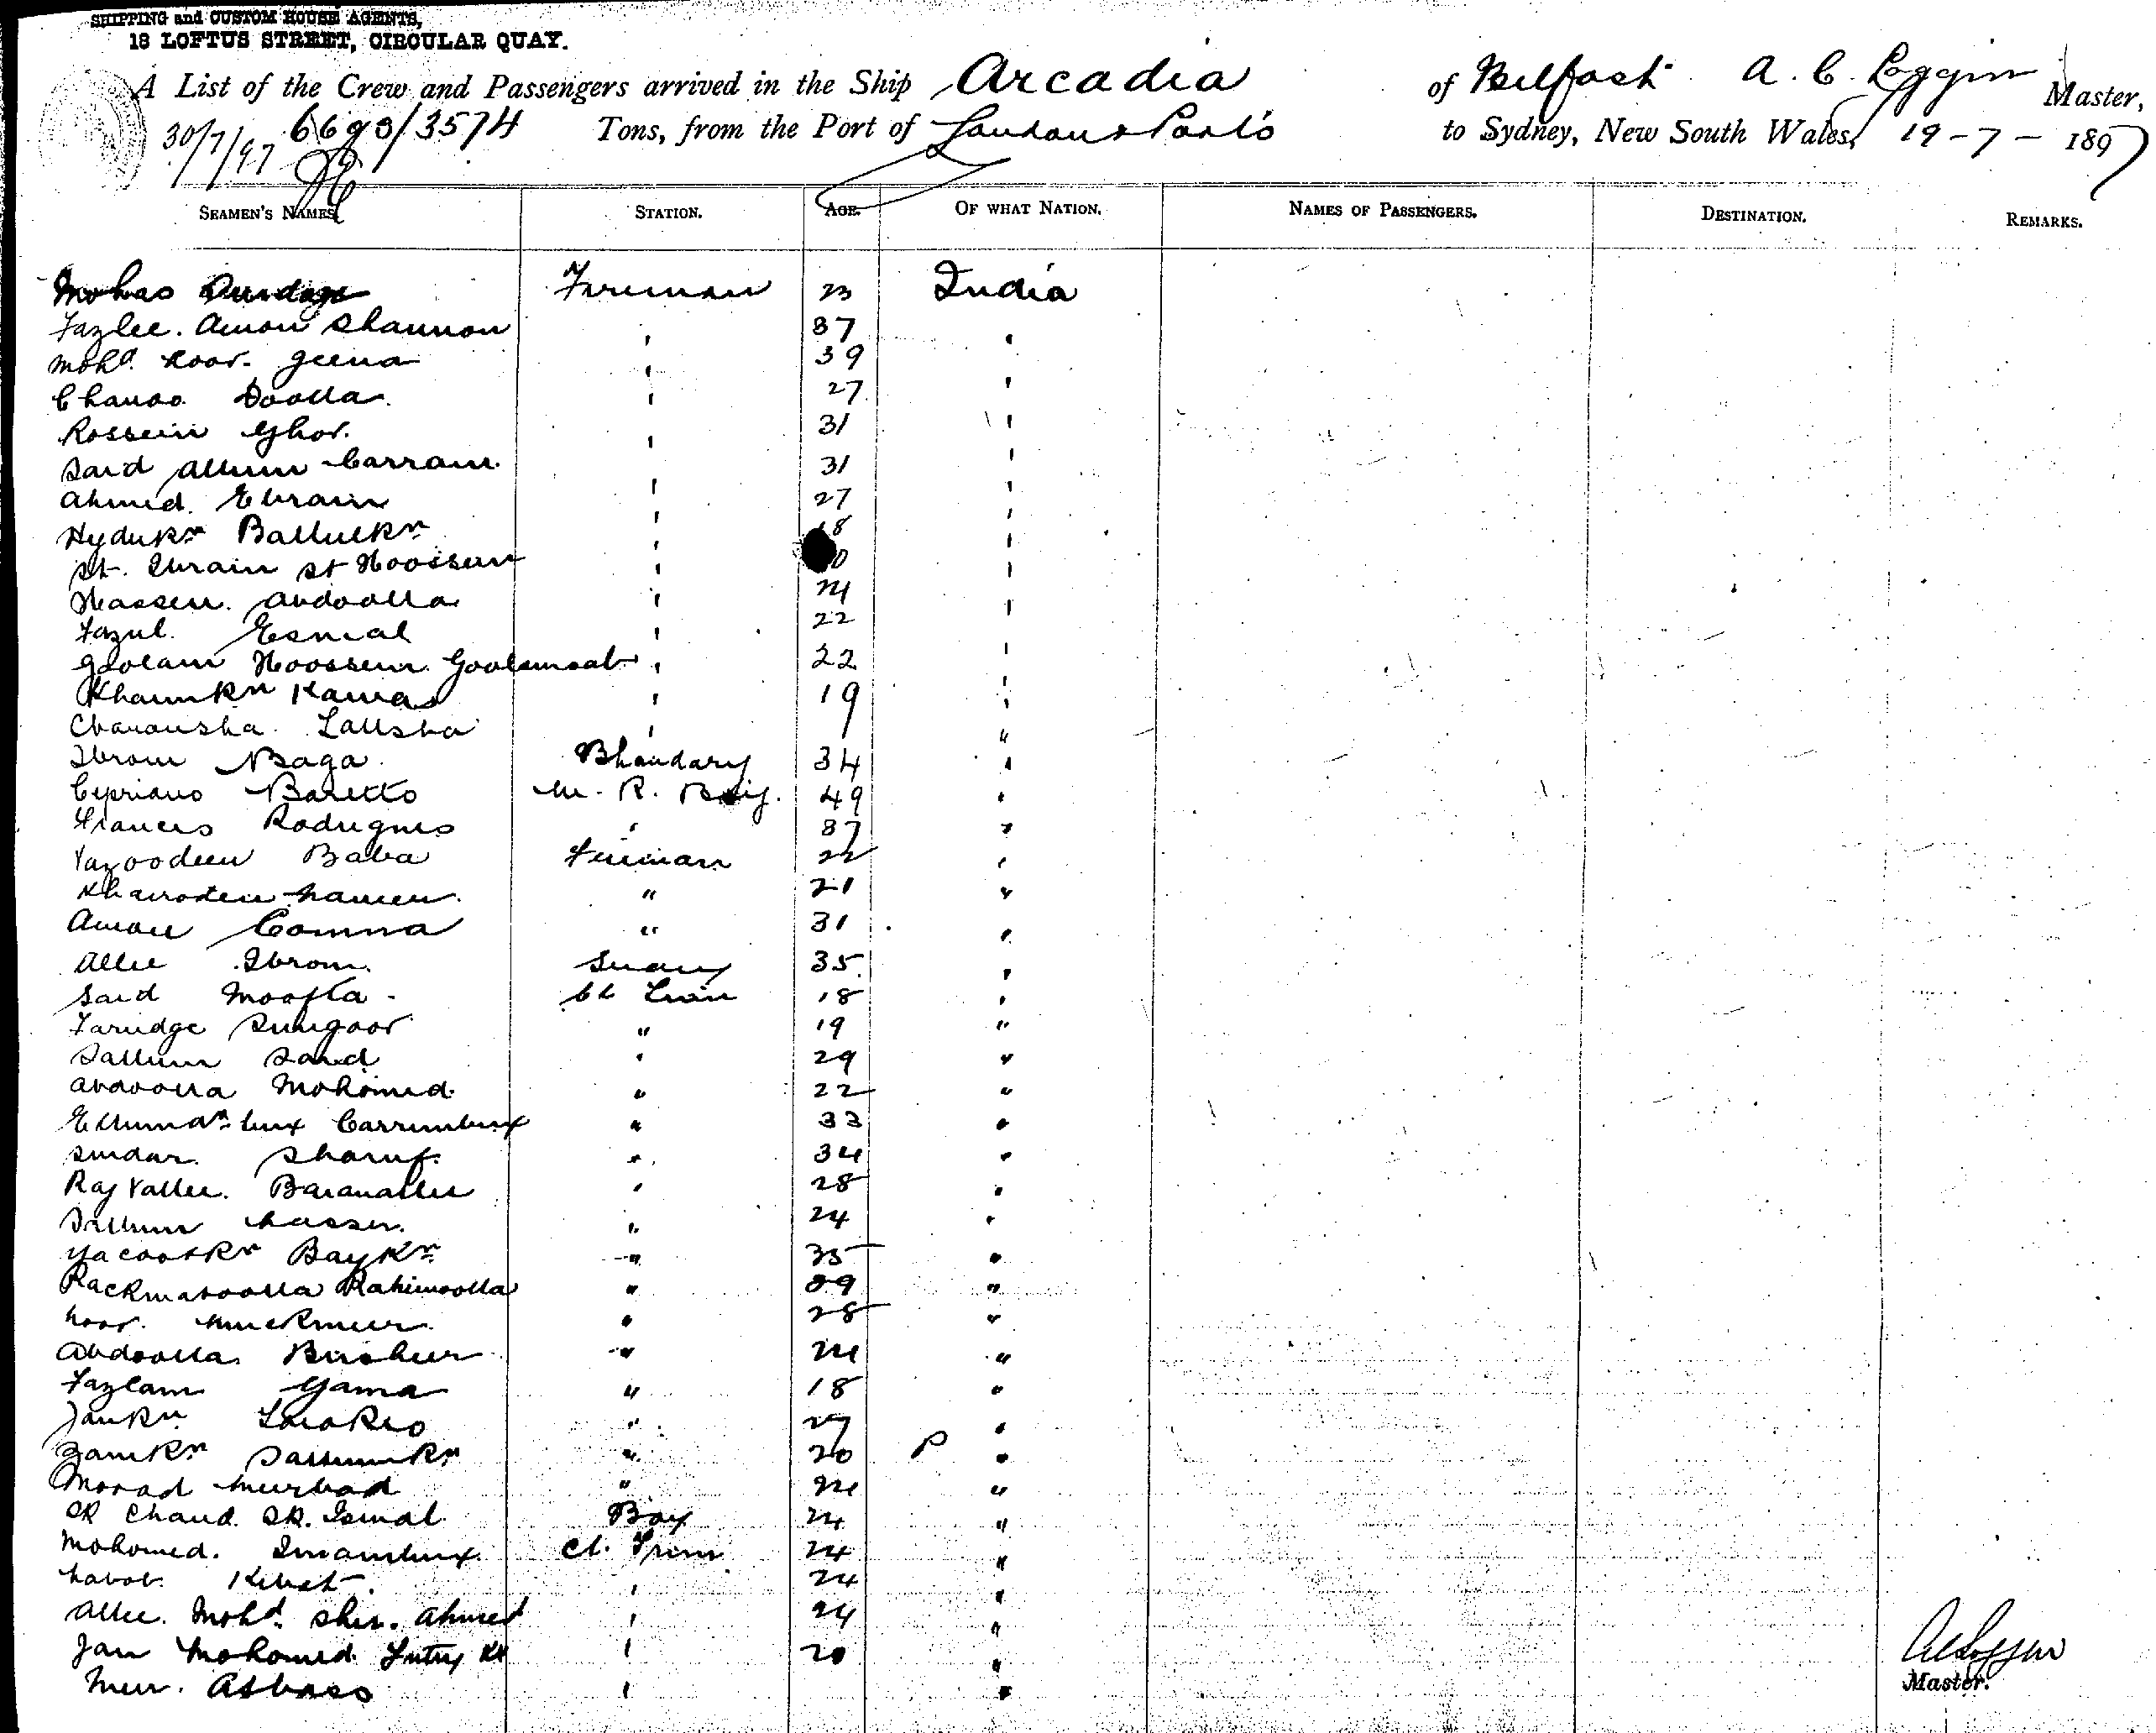 SHIPPING and CUSTOM HOUSE AGENTS,
18 LOFTUS STREET, CIRCULAR QUAY.
A List of the Crew and Passengers arrived in the Ship Arcadia of Belfast A. C. Loggin Master,
30/7/97 6690/3574 Tons, from the Port of London & Ports to Sydney, New South Wales, 19-7-1897
SEAMEN'S NAMES. STATION. AGE. OF WHAT NATION. NAMES OF PASSENGERS. DESTINATION. REMARKS.
Fireman 23 India
Fazlee. Amon Shannon ' 37 '
Mohd. Noor. Jeena ' 39 '
Chanoo Doolla. ' 27 '
Rossein Ghor. ' 31 '
Said Allum Carram. ' 31 '
Ahmed. Ebraim ' 27 '
Hydukn ' 18 '
St. Ibraim St Hoossein ' '
Hassen. Abdoolla ' 24 '
Fazul. Esmal ' 22 '
Goolam Hoossein ' 22 '
Khamkn Kawa ' 19 '
Lallsha ' "
Ibrom Baga. Bhandary 34 '
Cypriano Baretto M. R. 49 '
Frances Rodrignes ' 37 "
Baba Fireman 22 '
" 21 "
Amon Comna " 31 "
Allee Ibrom. 35 "
Said Moosla. Cl Trim 18 "
Farudge Sungoor " 19 "
Sallum Said ' 29 "
Abdoolla Mohomed. " 22 "
bux Carrimbux " 33 "
Sundar. Sharuf. " 34 "
Raj Vallee. ' 28 "
Sallum Hassen. " 24 "
Baykn " 35 "
Rackmatoolla Rahimoolla " 39 "
Noor. " 28 "
Abdoolla. " 24 "
Fazlam Gama " 18 "
Jankn " 27 "
Zamkn Sallumkn " 20 P "
Morad " 24 "
SK Chand. SK. Ismal Boy 24 "
Mohomed. Imambux. Cl. Trim 24 "
' 24 "
Allee. Mohd. Sher. Ahmed ' 24 "
Jan Mohomed ' 20 "
Meer. Abbass ' "
A C Loggin
Master.